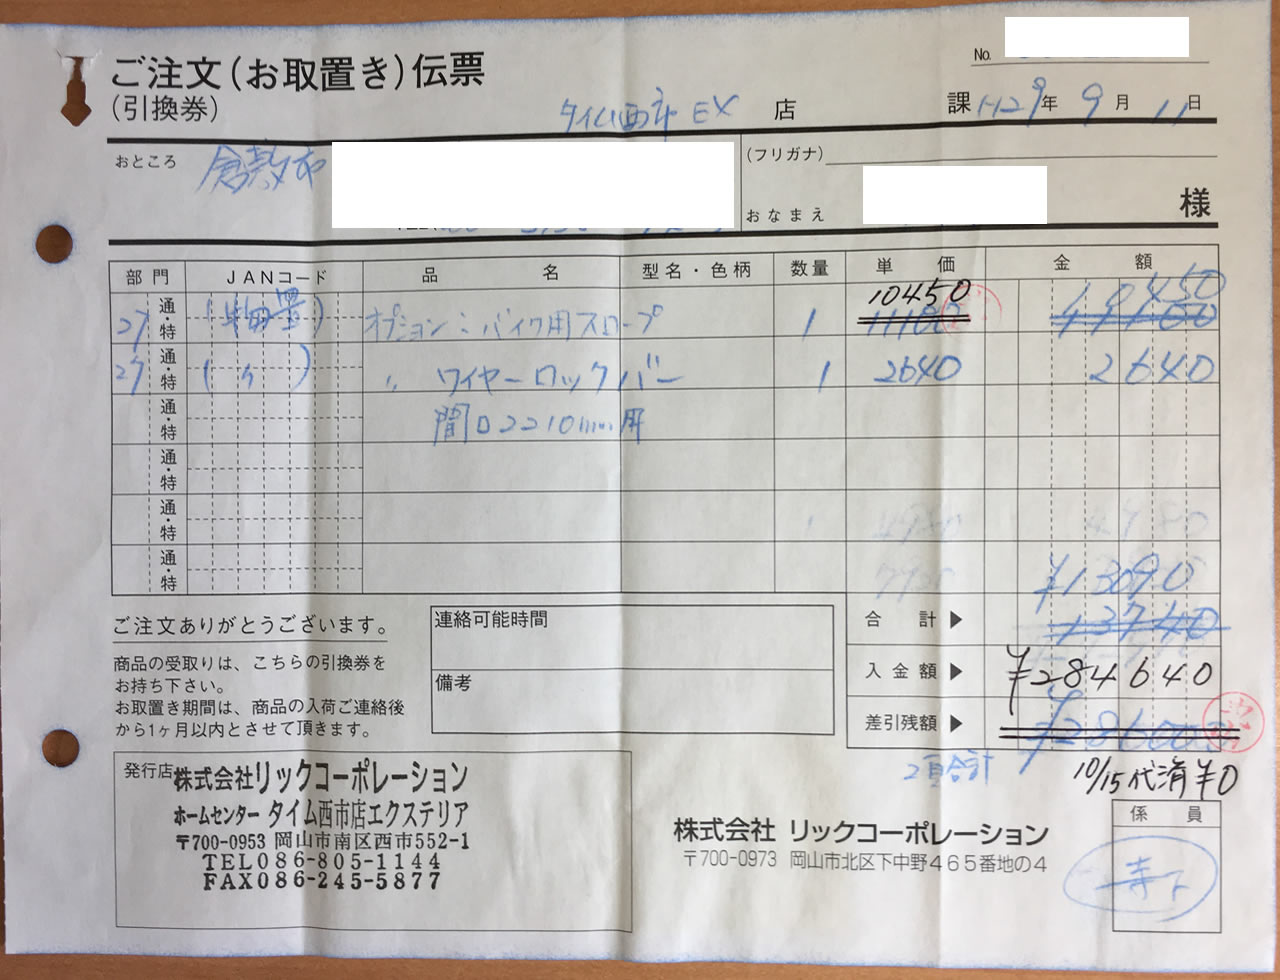 No.
ご注文(お取置き)伝票
(引換券)
タイム西市 EX 店
課 H29年 9月 11日
おところ 倉敷市
(フリガナ)
おなまえ 様
部門 JANコード 品名 型名・色柄 数量 単価 金額
10450 10450
27 通・特 オプション:バイク用スロープ 1 11100 11100
27 通・特 ( 〃 ) 〃 ワイヤーロックバー 1 2640 2640
通・特 間口2210mm用
通・特
通・特
通・特
¥13090
合計▶ 13740
入金額▶ ¥284640
差引残額▶
2頁合計
10/15代済 ¥0
ご注文ありがとうございます。
商品の受取りは、こちらの引換券を
お持ち下さい。
お取置き期間は、商品の入荷ご連絡後
から1ヶ月以内とさせて頂きます。
連絡可能時間
備考
発行店 株式会社リックコーポレーション
ホームセンター タイム西市店エクステリア
〒700-0953 岡山市南区西市552-1
TEL086-805-1144
FAX086-245-5877
株式会社 リックコーポレーション
〒700-0973 岡山市北区下中野465番地の4
係員
寺下